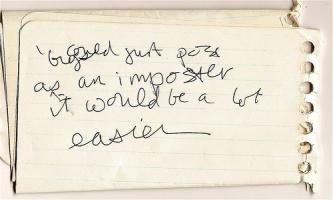 just
as an imposter
it would be a lot
easier